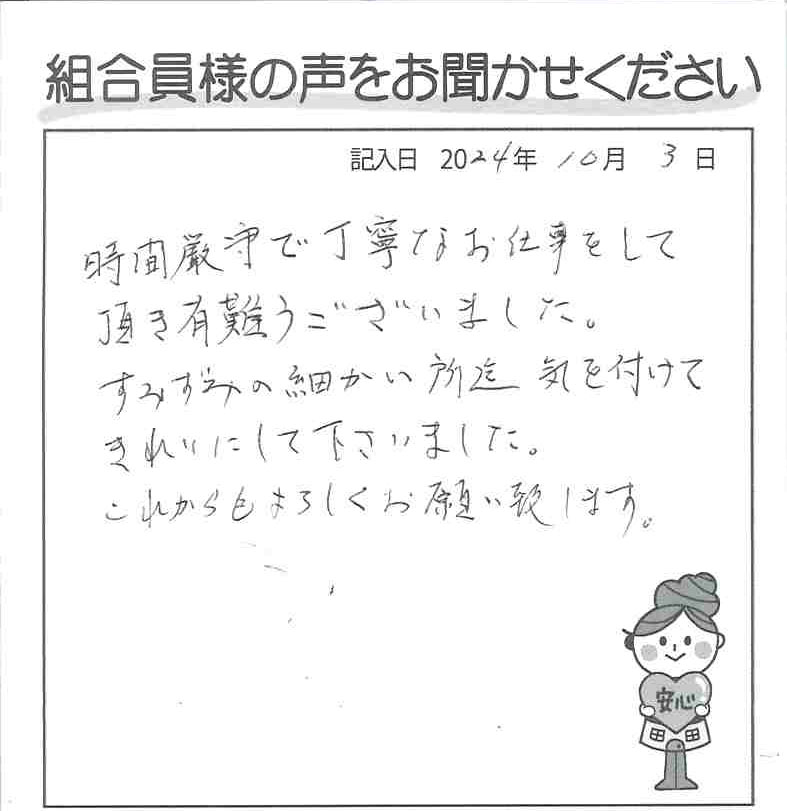 組合員様の声をお聞かせください
記入日 2024年 10月 3日
時間厳守で丁寧なお仕事をして
頂き有難うございました。
すみずみの細かい所迄 気を付けて
きれいにして下さいました。
これからもよろしくお願い致します。
安心